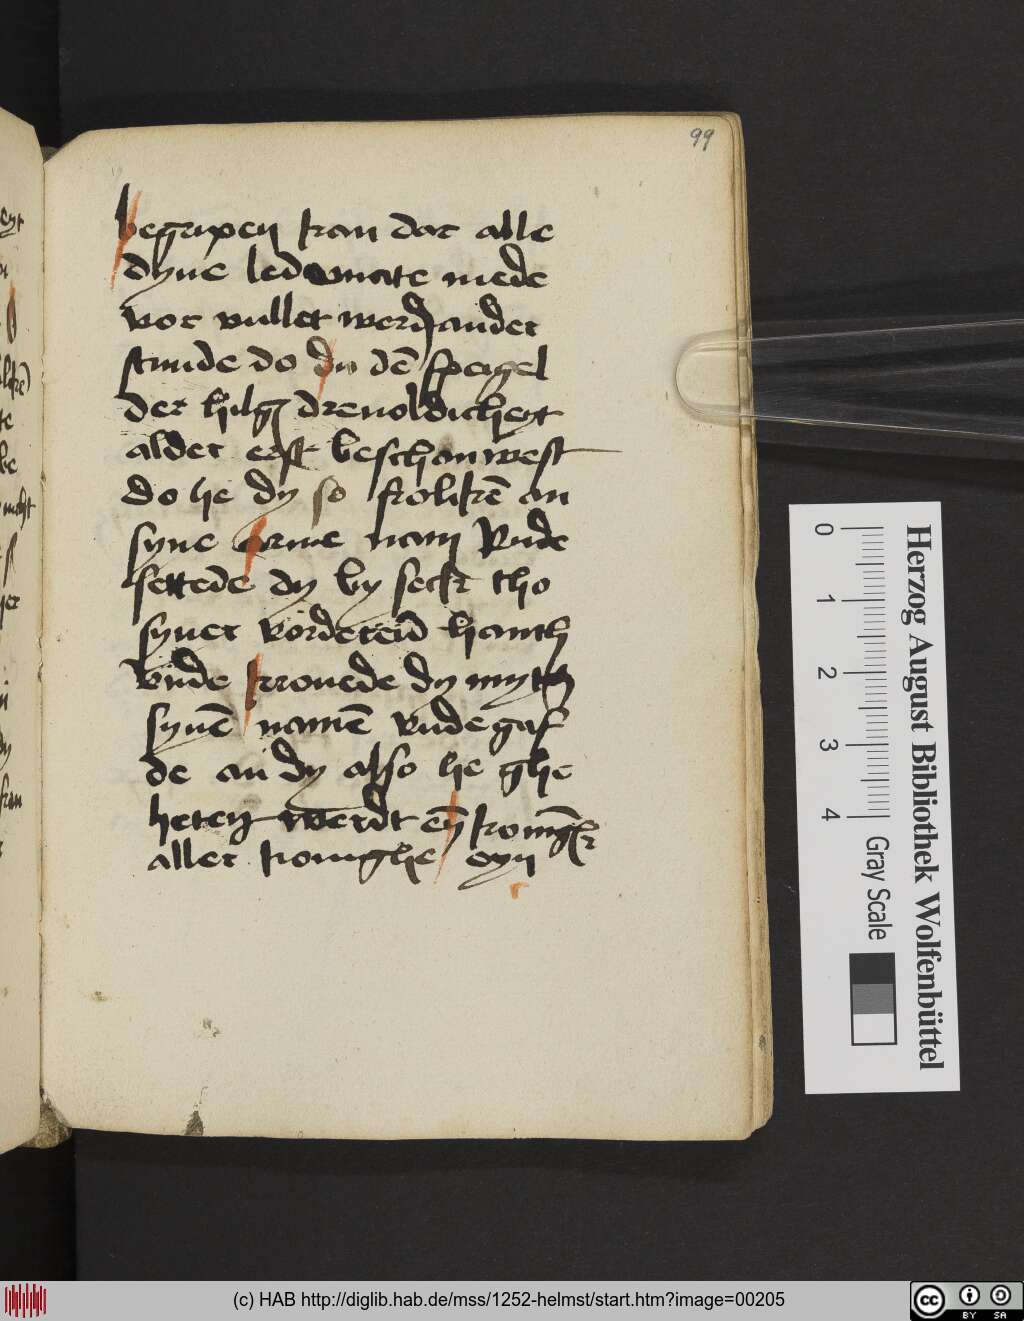 99
begripen kan dat alle
dyne ledematе mede
vor vullet werd ander
stunde do du dē speigel
der hilgē drevoldicheyt
alder erst beschauwest
do he dy so frolikē an
syne arme nam vnde
settede dy by seck tho
syner vorderen hanth
vnde kronede dy myt
synē namē vnde gaf
de an dy also he ghe
heten werdt eyn
aller konighe eyn
Herzog August Bibliothek Wolfenbüttel
0 1 2 3 4
Gray Scale
(c) HAB http://diglib.hab.de/mss/1252-helmst/start.htm?image=00205
cc BY SA